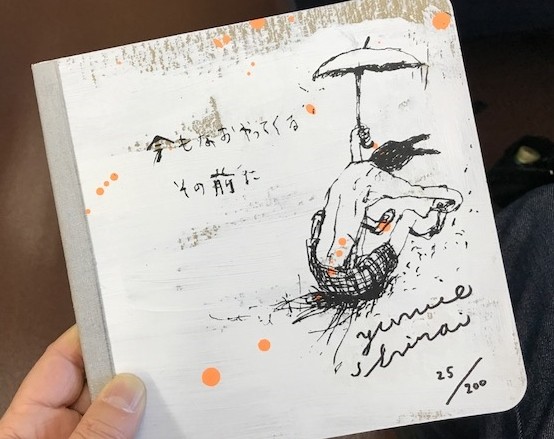 今もなおやってくる
その前に
yumie
shirai
25/200